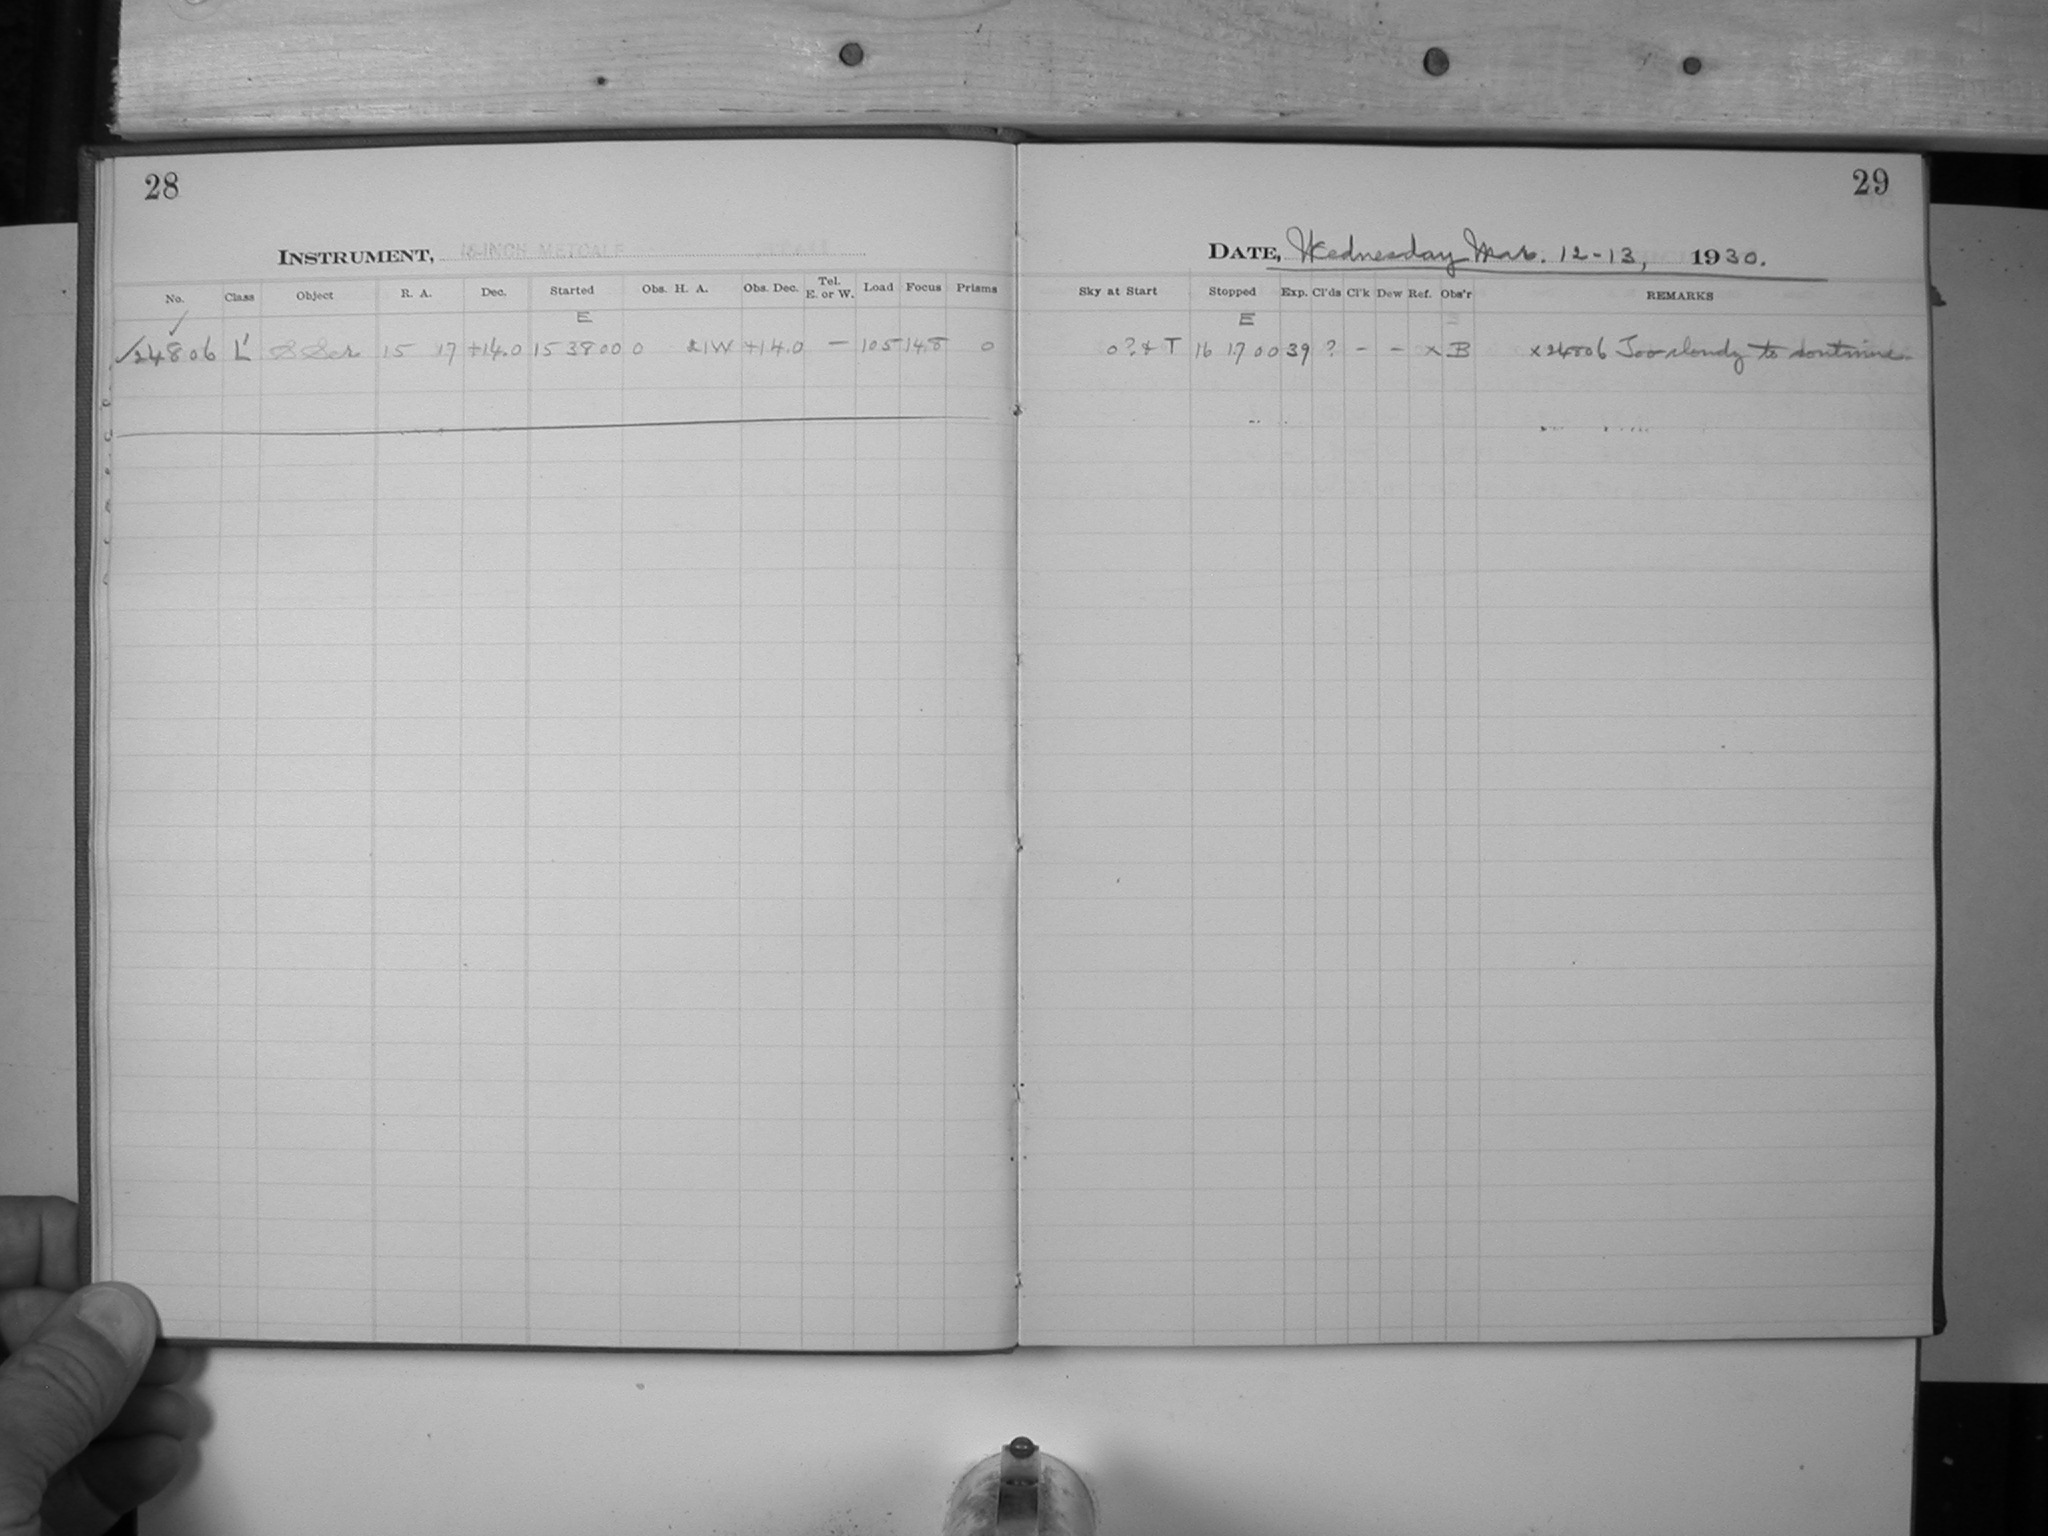 28
INSTRUMENT, 16-INCH METCALF
No. Class Object R. A. Dec. Started Obs. H. A. Obs. Dec. Tel. E. or W. Load Focus Prisms
E
✓24806 L' S Ser 15 17 +14.0 15 38 00 0 21W +14.0 — 105 14.8 0
29
DATE, Wednesday Mar. 12-13, 1930.
Sky at Start Stopped Exp. Cl'ds Cl'k Dew Ref. Obs'r REMARKS
E
0? & T 16 17 00 39 ? - - x B x24806 Too cloudy to continue.